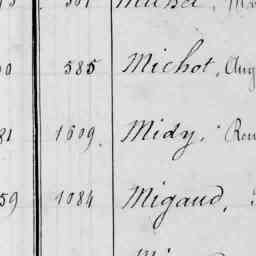 585 Michot, Aug
81 1609. Midy, Ren
59 1084 Migaud,